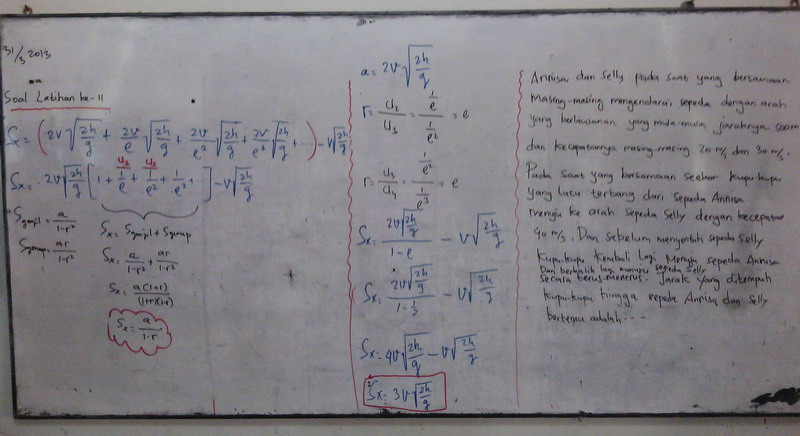 31/3 2013
Soal Latihan ke-11
Sx = (2v√(2h/g) + 2v/e √(2h/g) + 2v/e² √(2h/g) + 2v/e³ √(2h/g) + ...) - v√(2h/g)
u₂ u₃
Sx = 2v√(2h/g) [1 + 1/e + 1/e² + 1/e³ + ...] - v√(2h/g)
Sganjil = a/(1-r²)
Sgenap = ar/(1-r²)
Sx = Sganjil + Sgenap
Sx = a/(1-r²) + ar/(1-r²)
Sx = a(1+r)/((1+r)(1-r))
Sx = a/(1-r)
a = 2v√(2h/g)
r = u₂/u₃ = (1/e)/(1/e²) = e
r = u₃/u₄ = (1/e²)/(1/e³) = e
Sx = 2v√(2h/g)/(1-e) - v√(2h/g)
Sx = 2v√(2h/g)/(1-½) - v√(2h/g)
Sx = 4v√(2h/g) - v√(2h/g)
Sx = 3v√(2h/g)
Annisa dan Selly pada saat yang bersamaan
masing-masing mengendarai sepeda dengan arah
yang berlawanan yang mula-mula jaraknya 500m
dan kecepatannya masing-masing 20 m/s dan 30 m/s.
Pada saat yang bersamaan seekor kupu-kupu
yang lucu terbang dari sepeda Annisa
menuju ke arah sepeda Selly dengan kecepatan
40 m/s. Dan sebelum menyentuh sepeda Selly
kupu-kupu kembali lagi menuju sepeda Annisa
Dan berbalik lagi menuju sepeda Selly
secara terus-menerus. Jarak yang ditempuh
kupu-kupu hingga sepeda Annisa dan Selly
bertemu adalah ....